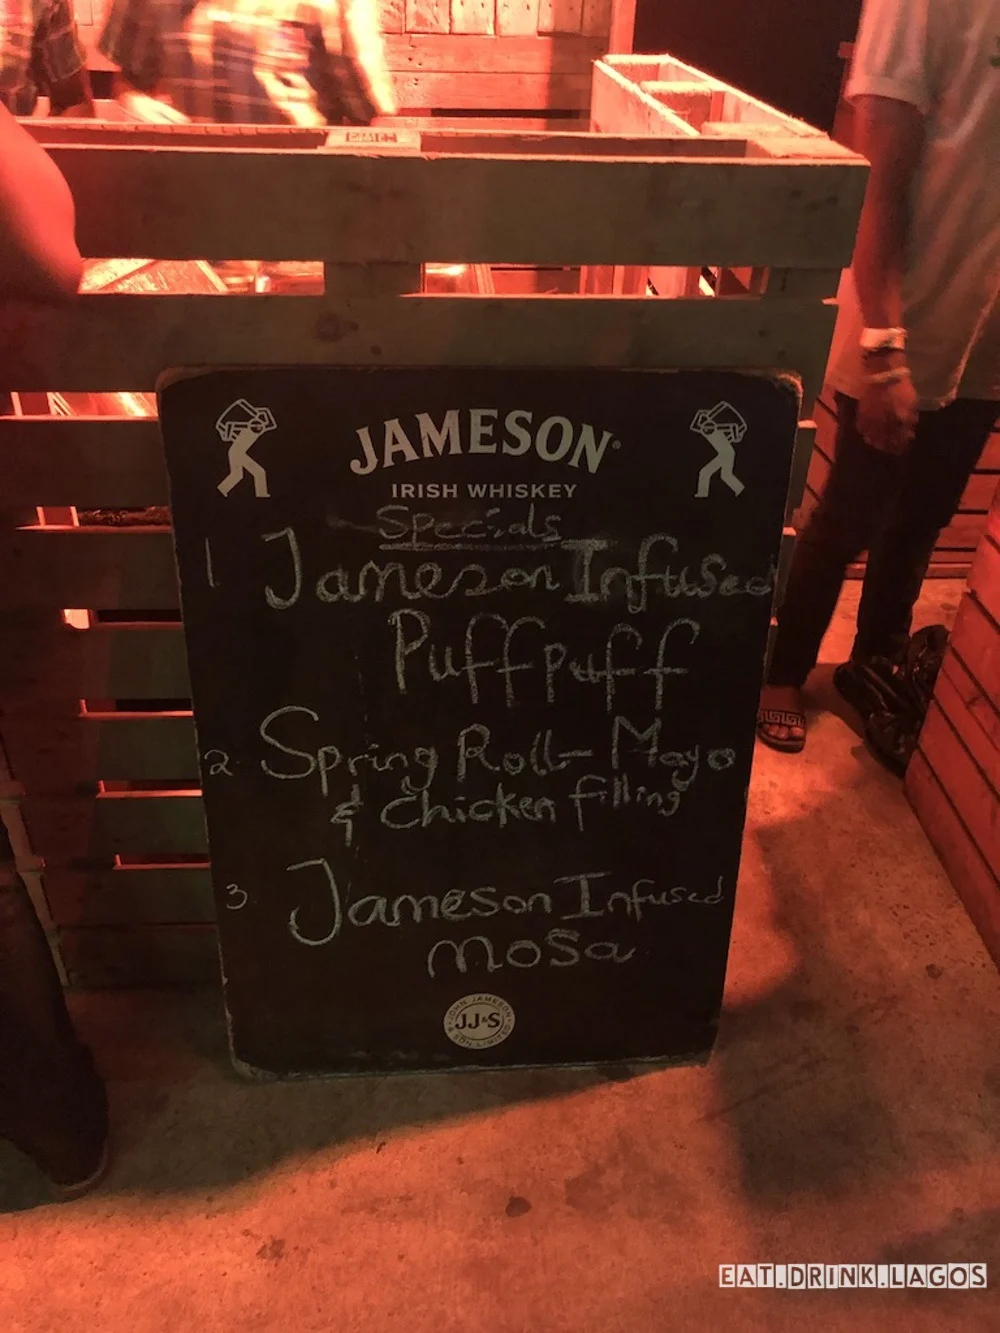 JAMESON
IRISH WHISKEY
Specials
1 Jameson Infused
Puffpuff
2. Spring Roll - Mayo
& chicken filling
3. Jameson Infused
mosa
JOHN JAMESON
JJ&S
& SON LIMITED
EAT.DRINK.LAGOS